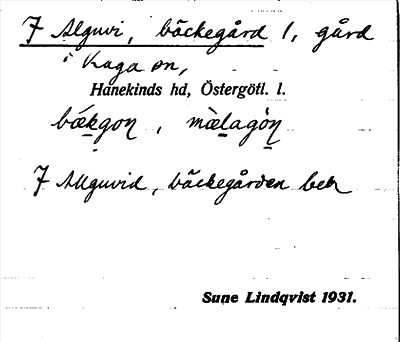 7 Alguvi, bäckegård 1, gård
i Kaga sn,
Hanekinds hd, Östergötl. l.
bækgoɳ, mælagòɳ
7 Allguvid, bäckegården beb
Sune Lindqvist 1931.